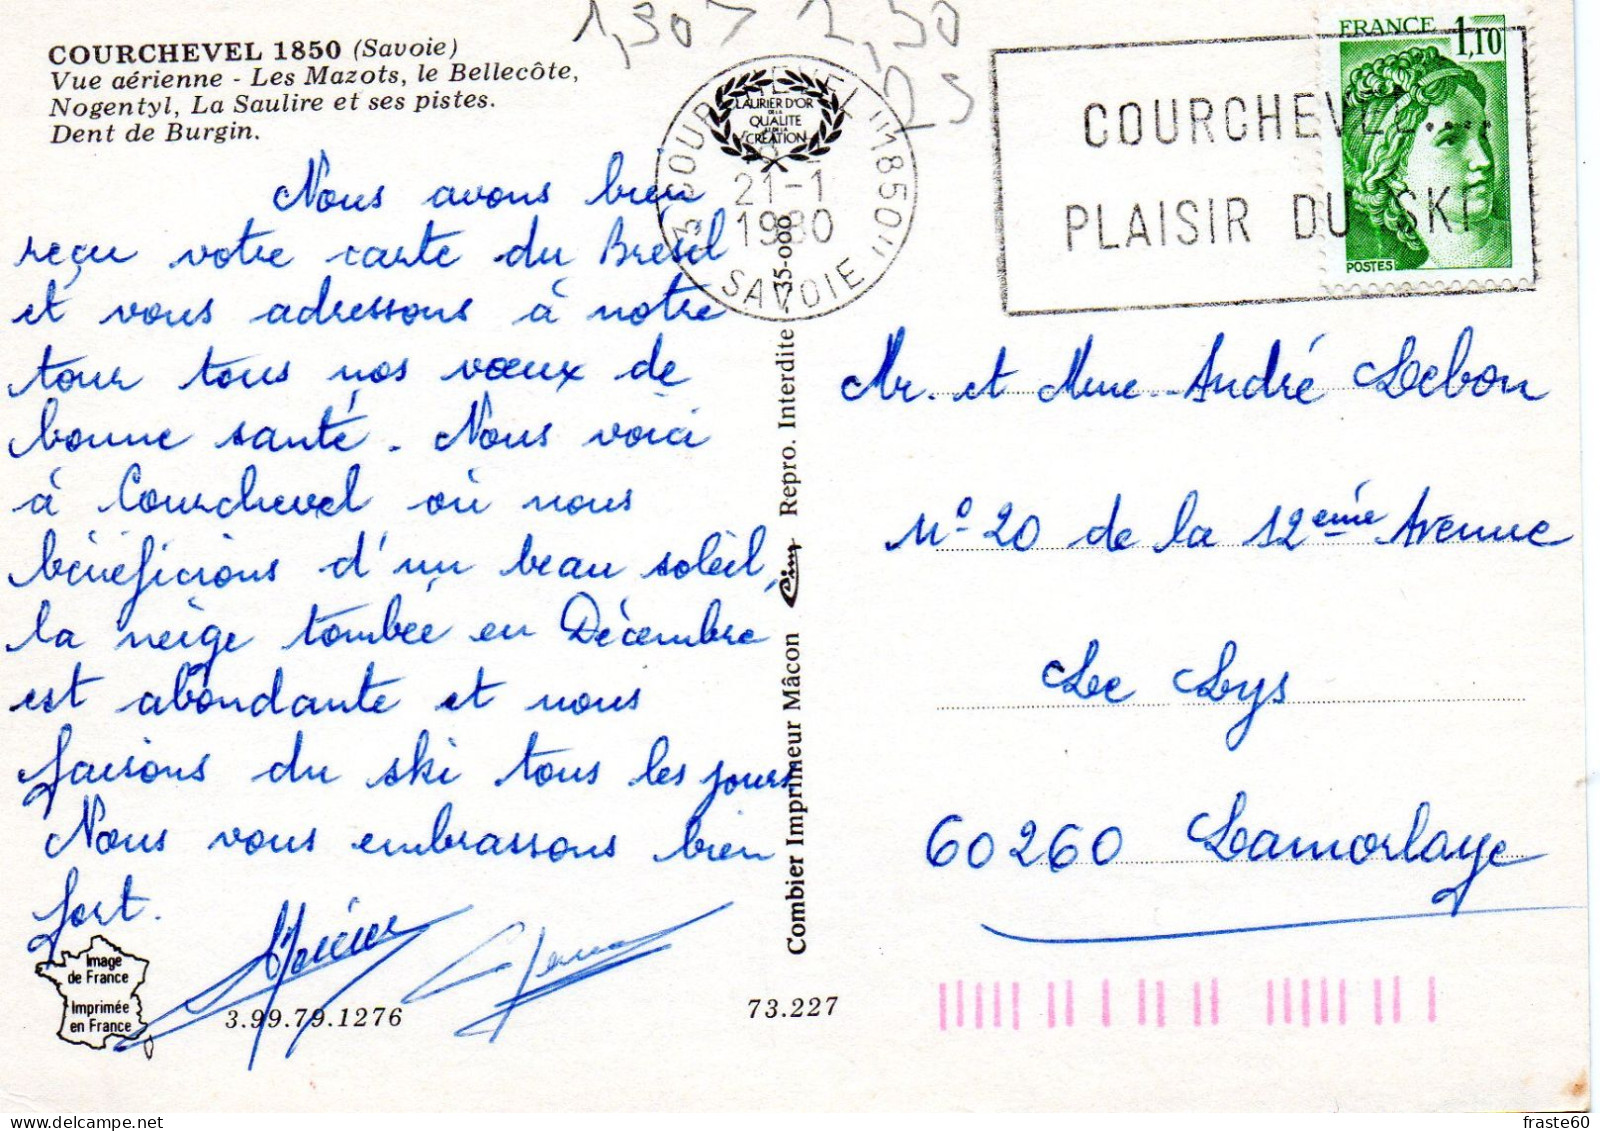 COURCHEVEL 1850 (Savoie)
Vue aérienne - Les Mazots, le Bellecôte,
Nogentyl, La Saulire et ses pistes.
Dent de Burgin.
1,30 > 2,50
25
LAURIER D'OR
DE LA
QUALITE
ET DE LA
CRÉATION
73 COURCHEVEL "1850"
21-1
1980
SAVOIE
COURCHEVEL....
PLAISIR DU SKI
FRANCE
1,10
POSTES
Nous avons bien
reçu votre carte du Brésil
et vous adressons à notre
tour tous nos vœux de
bonne santé. Nous voici
à Courchevel où nous
bénéficions d'un beau soleil,
la neige tombée en Décembre
est abondante et nous
faisons du ski tous les jours
Nous vous embrassons bien
fort.
Image
de France
Imprimée
en France
3.99.79.1276
73.227
Combier Imprimeur Mâcon Cim Repro. Interdite -35-000
Mr. et Mme André Lebon
N° 20 de la 12ème Avenue
Le Lys
60260 Lamorlaye
fraste60